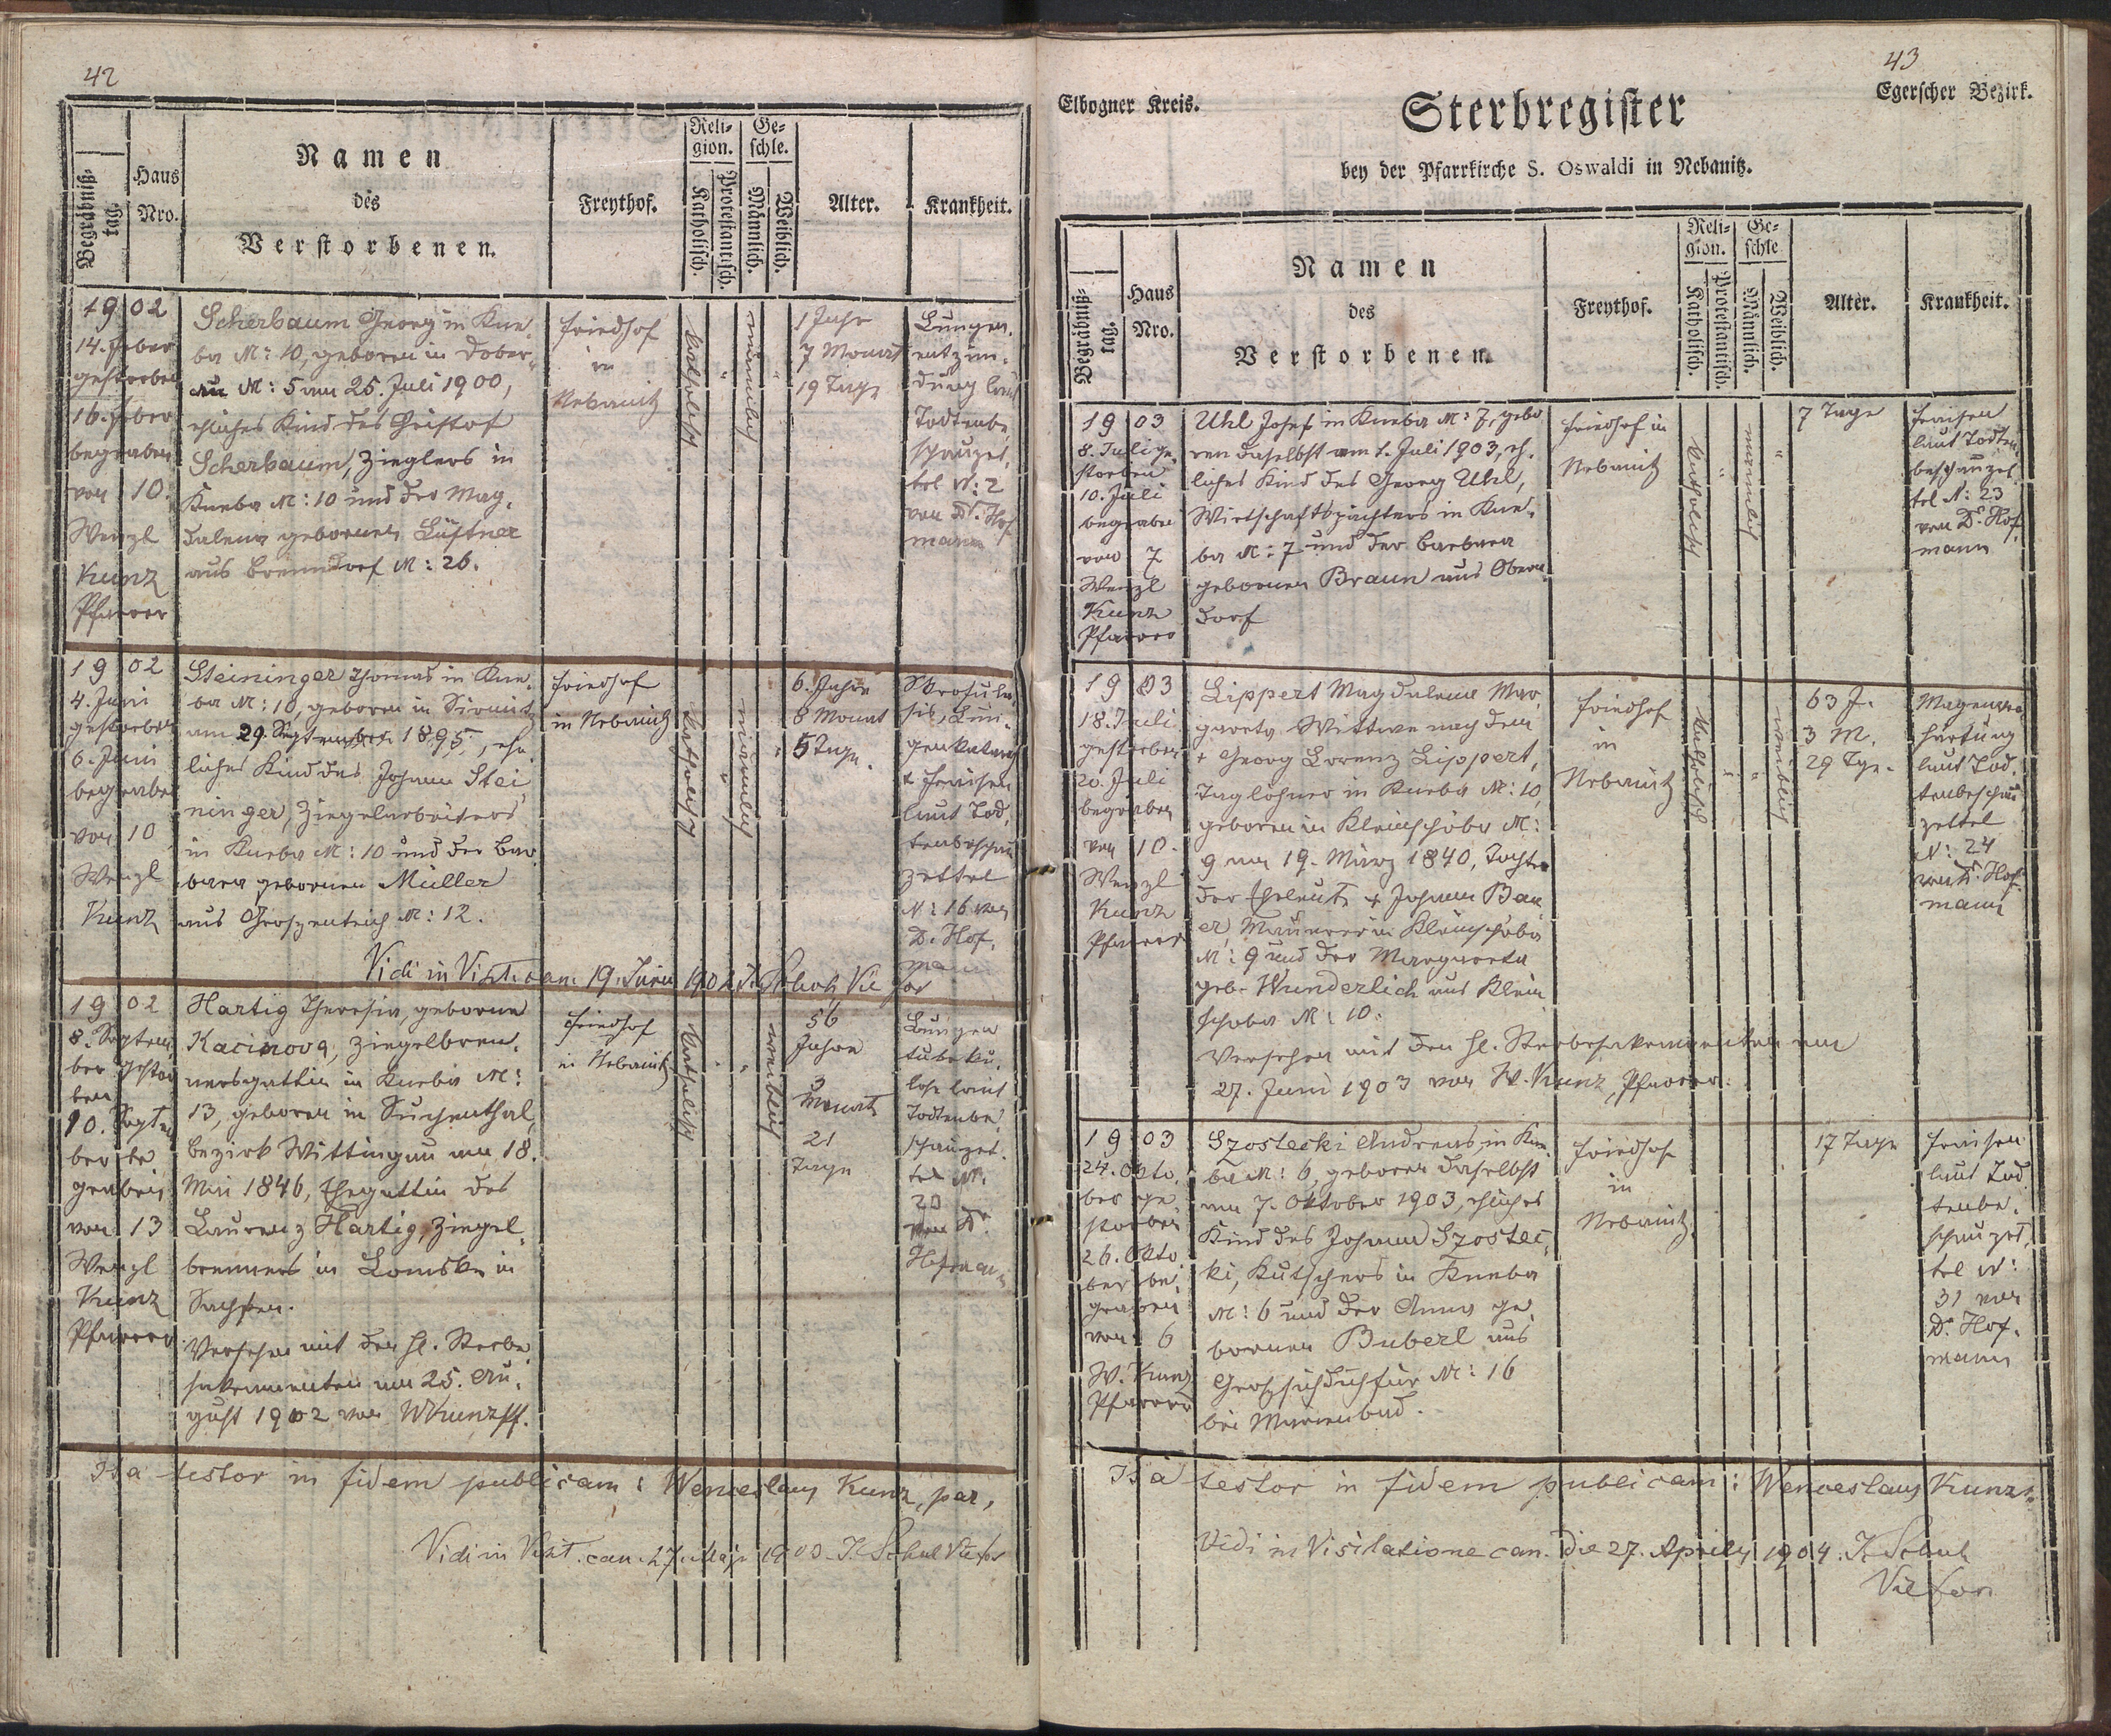 42
Begräbniß-
tag.
Haus
Nro.
Namen
des
Verstorbenen.
Freythof.
Reli-
gion.
Katholisch.
Protestantisch.
Ge-
schle.
Männlich.
Weiblich.
Alter.
Krankheit.
1902
14. Feber
gestorben
16. Feber
begraben
von 10.
Wenzl
Kunz
Pfarrer
Scherbaum Georg in Kne-
ba N: 10, geboren in Dober-
au N: 5 am 25. Juli 1900,
eheliches Kind des Christof
Scherbaum, Zieglers in
Kneba N: 10 und der Mag-
dalena gebornen Lüftner
aus Brenndorf N: 26.
Friedhof
in
Nebanitz
katholisch
"
männlich
"
1 Jahr
7 Monat
19 Tage
Lungen-
entzün-
dung laut
Todtenbe-
schauzet-
tel N: 2
von Dr. Hof
mann
1902
4. Juni
gestorben
6. Juni
begraben
von 10
Wenzl
Kunz
Steininger Thomas in Kne-
ba N: 10, geboren in Sirmitz
am 29. September 1895, ehe-
liches Kind des Johann Stei-
ninger, Ziegelarbeiters
in Kneba N: 10 und der Bar-
bara gebornen Müller
aus Groszentrich N: 12.
Friedhof
in Nebanitz
katholisch
"
männlich
"
6. Jahre
8 Monat
5 Tage.
Skrofulo-
sis, Lun-
genkatarrh
& Fraisen
laut Tod-
tenbeschau
zettel
N: 16 von
D. Hof-
mann
Vidi in Visit. can. 19. Junii 1902
1902
8. Septem-
ber gestor-
ben
10. Septem-
ber be
graben
von 13
Wenzl
Kunz
Pfarrer.
Hartig Theresia, geborne
Kacirova, Ziegelbren-
nersgattin in Kneba N:
13, geboren in Suchenthal,
Bezirk Wittingau am 18.
Mai 1846, Ehegattin des
Laurenz Hartig, Ziegel-
brenners in Lomske in
Sachsen.
Versehen mit den hl. Sterbe
sakramenten am 25. Au-
gust 1902 von WKunz Pf.
Friedhof
in Nebanitz
katholisch
"
"
weiblich
56
Jahre
3
Monate
21
Tage
Lungen
tuberku-
lose laut
Todtenbe-
schauzet-
tel N:
20
von Dr.
Hofmann
Ita testor in fidem publicam: Wenceslaus Kunz, par,
Vidi in Visit. can. 27. Maji 1903
43
Elbogner Kreis.
Egerscher Bezirk.
Sterbregister
bey der Pfarrkirche S. Oswaldi in Nebanitz.
Begräbniß-
tag.
Haus
Nro.
Namen
des
Verstorbenen.
Freythof.
Reli-
gion.
Katholisch.
Protestantisch.
Ge-
schle
Männlich.
Weiblich.
Alter.
Krankheit.
1903
8. Juli ge-
storben
10. Juli
begraben
von 7
Wenzl
Kunz
Pfarrer
Uhl Josef in Kneba N: 7, gebo
ren daselbst am 1. Juli 1903, eh-
liches Kind des Georg Uhl,
Wirtschaftspächters in Kne-
ba N: 7 und der Barbara
gebornen Braun aus Obern-
dorf
Friedhof in
Nebanitz
katholisch
"
männlich
"
7 Tage
Fraisen
laut Todten-
beschauzet
tel N: 23
von Dr. Hof-
mann
1903
18. Juli
gestorben
20. Juli
begraben
von 10.
Wenzl
Kunz
Pfarrer
Lippert Magdalena Mar-
gareta Wittwe nach dem
+ Georg Lorenz Lippert,
Taglöhner in Kneba N: 10,
geboren in Kleinschöba N:
9 am 19. März 1840, Tochter
der Eheleute + Johann Bau
er, Maurer in Kleinschöba
N: 9 und der Margareta
geb. Wunderlich aus Klein
schöba N: 10.
Versehen mit den hl. Sterbesakramenten am
27. Juni 1903 von W. Kunz, Pfarrer.
Friedhof
in
Nebanitz
katholisch
"
"
weiblich
63 J.
3 M.
29 Tge.
Magenver-
härtung
laut Tod-
tenbeschau
zettel
N: 24
von D. Hof-
mann
1903
24. Okto-
ber ge
storben
26. Okto
ber be-
graben
von 6
W. Kunz
Pfarrer
Szostecki Andreas, in Kne
ba N: 6, geboren daselbst
am 7. Oktober 1903, eheliches
Kind des Johann Szostec-
ki, Kutschers in Kneba
N: 6 und der Anna ge-
bornen Buberl aus
Groszsichdichfür N: 16
bei Marienbad.
Friedhof
in
Nebanitz
17 Tage
Fraisen
laut Tod
tenbe-
schauzet-
tel N:
31 von
D. Hof-
mann
Ita testor in fidem publicam: Wenceslaus Kunz.
Vidi in Visitatione can. die 27. Aprilis 1904.